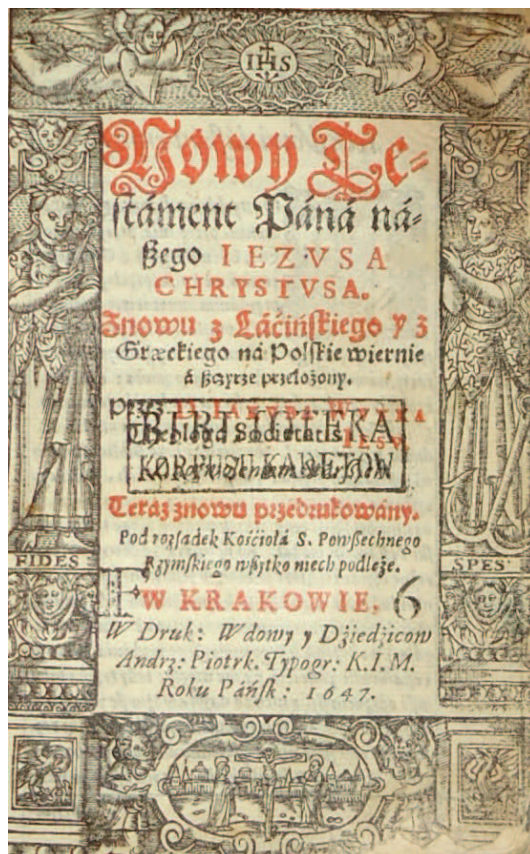 IHS
Nowy Te-
stáment Páná ná-
ßego IEZVSA
CHRYSTVSA.
Znowu z Láćińskiego y z
Græckiego ná Polskie wiernie
á ßczyrze przełożony.
przez D. IAKVBA WVYKA
Theologa Societatis IESV.
BIBLIOTEKA
KORPUSU KADETÓW
Teraz znowu przedrukowány.
Pod rozsadek Kośćiołá S. Powßechnego
Rzymskiego wßytko niech podleże.
FIDES
SPES
W KRAKOWIE. 6
W Druk: Wdowy y Dźiedźicow
Andrz: Piotrk. Typogr: K.I.M.
Roku Páńsk: 1647.